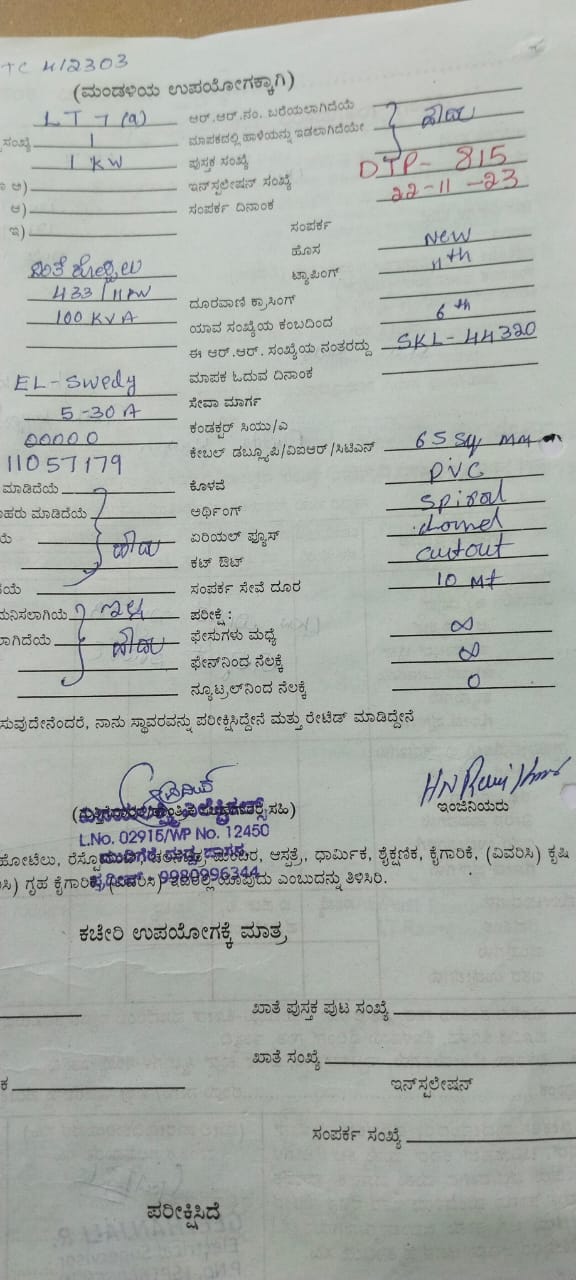 TC 412303
(ಮಂಡಳಿಯ ಉಪಯೋಗಕ್ಕಾಗಿ)
LT 7 (a) ಆರ್.ಆರ್.ನಂ. ಬರೆಯಲಾಗಿದೆಯೆ
ಸಂಖ್ಯೆ 1 ಮಾಪಕದಲ್ಲಿ ಹಾಳೆಯನ್ನು ಇಡಲಾಗಿದೆಯೇ ಹೌದು
1 KW ಪುಸ್ತಕ ಸಂಖ್ಯೆ
ಅ) ಇನ್‌ಸ್ಟಲೇಷನ್ ಸಂಖ್ಯೆ DTP- 815
ಆ) ಸಂಪರ್ಕ ದಿನಾಂಕ 22-11-23
ಇ) ಸಂಪರ್ಕ
ಹೊಸ New
ಟ್ಯಾಪಿಂಗ್ 11th
433/11KW ದೂರವಾಣಿ ಕ್ರಾಸಿಂಗ್
100 KVA ಯಾವ ಸಂಖ್ಯೆಯ ಕಂಬದಿಂದ 6th
ಈ ಆರ್.ಆರ್. ಸಂಖ್ಯೆಯ ನಂತರದ್ದು SKL-44320
EL-Swedy ಮಾಪಕ ಓದುವ ದಿನಾಂಕ
5-30A ಸೇವಾ ಮಾರ್ಗ
00000 ಕಂಡಕ್ಟರ್ ಸಿಯು/ಎ
11057179 ಕೇಬಲ್ ಡಬ್ಲ್ಯೂಪಿ/ವಿಐಆರ್/ಸಿಟಿಎಸ್ 65 sq mm
ಮಾಡಿದೆಯೆ ಕೊಳವೆ PVC
ಹರು ಮಾಡಿದೆಯೆ ಆರ್ಥಿಂಗ್ Spiral
ಯೆ ಹೌದು ಏರಿಯಲ್ ಫ್ಯೂಸ್
ಕಟ್ ಔಟ್ cutout
ಯೆ ಸಂಪರ್ಕ ಸೇವೆ ದೂರ 10 Mt
ಮನಿಸಲಾಗಿಯೆ ಇಲ್ಲ ಪರೀಕ್ಷೆ :
ಲಾಗಿದೆಯೆ ಹೌದು ಫೇಸುಗಳು ಮಧ್ಯೆ ∞
ಫೇಸ್‌ನಿಂದ ನೆಲಕ್ಕೆ ∞
ನ್ಯೂಟ್ರಲ್‌ನಿಂದ ನೆಲಕ್ಕೆ 0
ಸುವುದೇನೆಂದರೆ, ನಾನು ಸ್ಥಾವರವನ್ನು ಪರೀಕ್ಷಿಸಿದ್ದೇನೆ ಮತ್ತು ರೇಟೆಡ್ ಮಾಡಿದ್ದೇನೆ
ಸಹಿ) ಇಂಜಿನಿಯರು
L.No. 02915/WP No. 12450
ಹೋಟೆಲು, ಆಸ್ಪತ್ರೆ, ಧಾರ್ಮಿಕ, ಶೈಕ್ಷಣಿಕ, ಕೈಗಾರಿಕೆ, (ವಿವರಿಸಿ) ಕೃಷಿ
ಸಿ) ಗೃಹ ಕೈಗಾರಿಕೆ, (ವಿವರಿಸಿ) ಯಾವುದು ಎಂಬುದನ್ನು ತಿಳಿಸಿರಿ.
9980996344
ಕಚೇರಿ ಉಪಯೋಗಕ್ಕೆ ಮಾತ್ರ
ಖಾತೆ ಪುಸ್ತಕ ಪುಟ ಸಂಖ್ಯೆ
ಖಾತೆ ಸಂಖ್ಯೆ
ಕ ಇನ್‌ಸ್ಟಲೇಷನ್
ಸಂಪರ್ಕ ಸಂಖ್ಯೆ
ಪರೀಕ್ಷಿಸಿದೆ